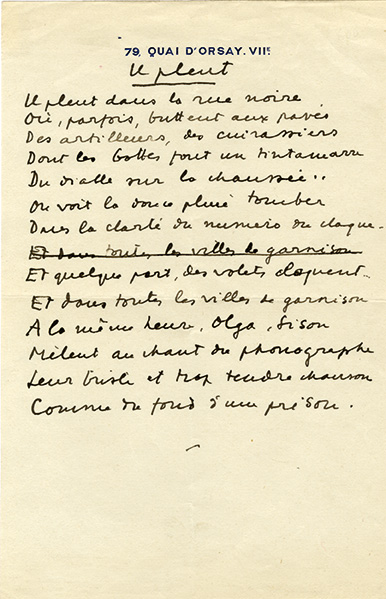 79, QUAI D'ORSAY. VIIE.
Il pleut
Il pleut dans la rue noire
Où, parfois, buttent aux pavés
Des artilleurs, des cuirassiers
Dont les bottes font un tintamarre
Du diable sur la chaussée..
On voit la douce pluie tomber
Dans la clarté du numéro du claque_
Et dans toutes les villes de garnison
Et quelque part, des volets claquent...
Et dans toutes les villes de garnison
A la même heure, Olga, Sison
Mêlent au chant du phonographe
Leur triste et trop tendre chanson
Comme du fond d'une prison.